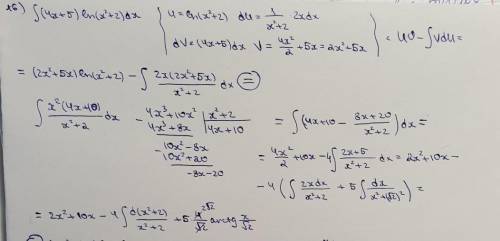 16) ∫(4x+5)ln(x²+2)dx { u=ln(x²+2) du=1/(x²+2)·2xdx
dV=(4x+5)dx V=4x²/2+5x=2x²+5x } = UV-∫Vdu=
=(2x²+5x)ln(x²+2)-∫2x(2x²+5x)/(x²+2) dx (=)
∫x²(4x+10)/(x²+2) dx
4x³+10x² | x²+2
4x³+8x | 4x+10
10x²-8x
10x²+20
-8x-20
=∫(4x+10-(8x+20)/(x²+2))dx=
=4x²/2+10x-4∫(2x+5)/(x²+2) dx=2x²+10x-
-4(∫2xdx/(x²+2)+5∫dx/(x²+(√2)²))=
=2x²+10x-4∫d(x²+2)/(x²+2)+5 2√2 4/√2 arctg x/√2